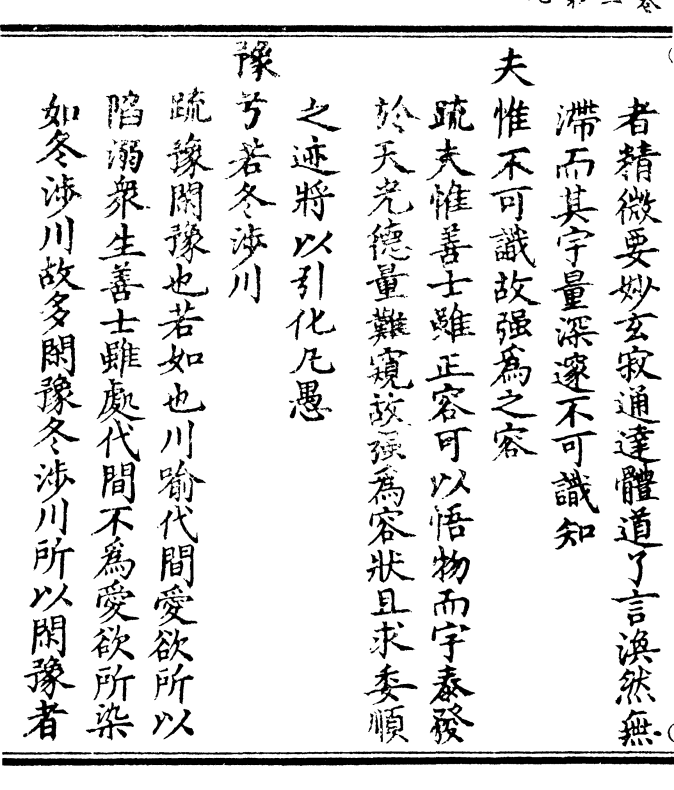 者精微要妙玄寂通達體道了言渙然無
滯而其字量深邃不可識知
夫惟不可識故强爲之容
疏夫惟善士雖正容可以悟物而字泰發
於天光德量難窺故强爲容狀且求委順
之迹將以引化凡愚
豫兮若冬涉川
疏豫閑豫也若如也川喻代間愛欲所以
陷溺衆生善士雖處代間不爲愛欲所染
如冬涉川故多閑豫冬涉川所以閑豫者